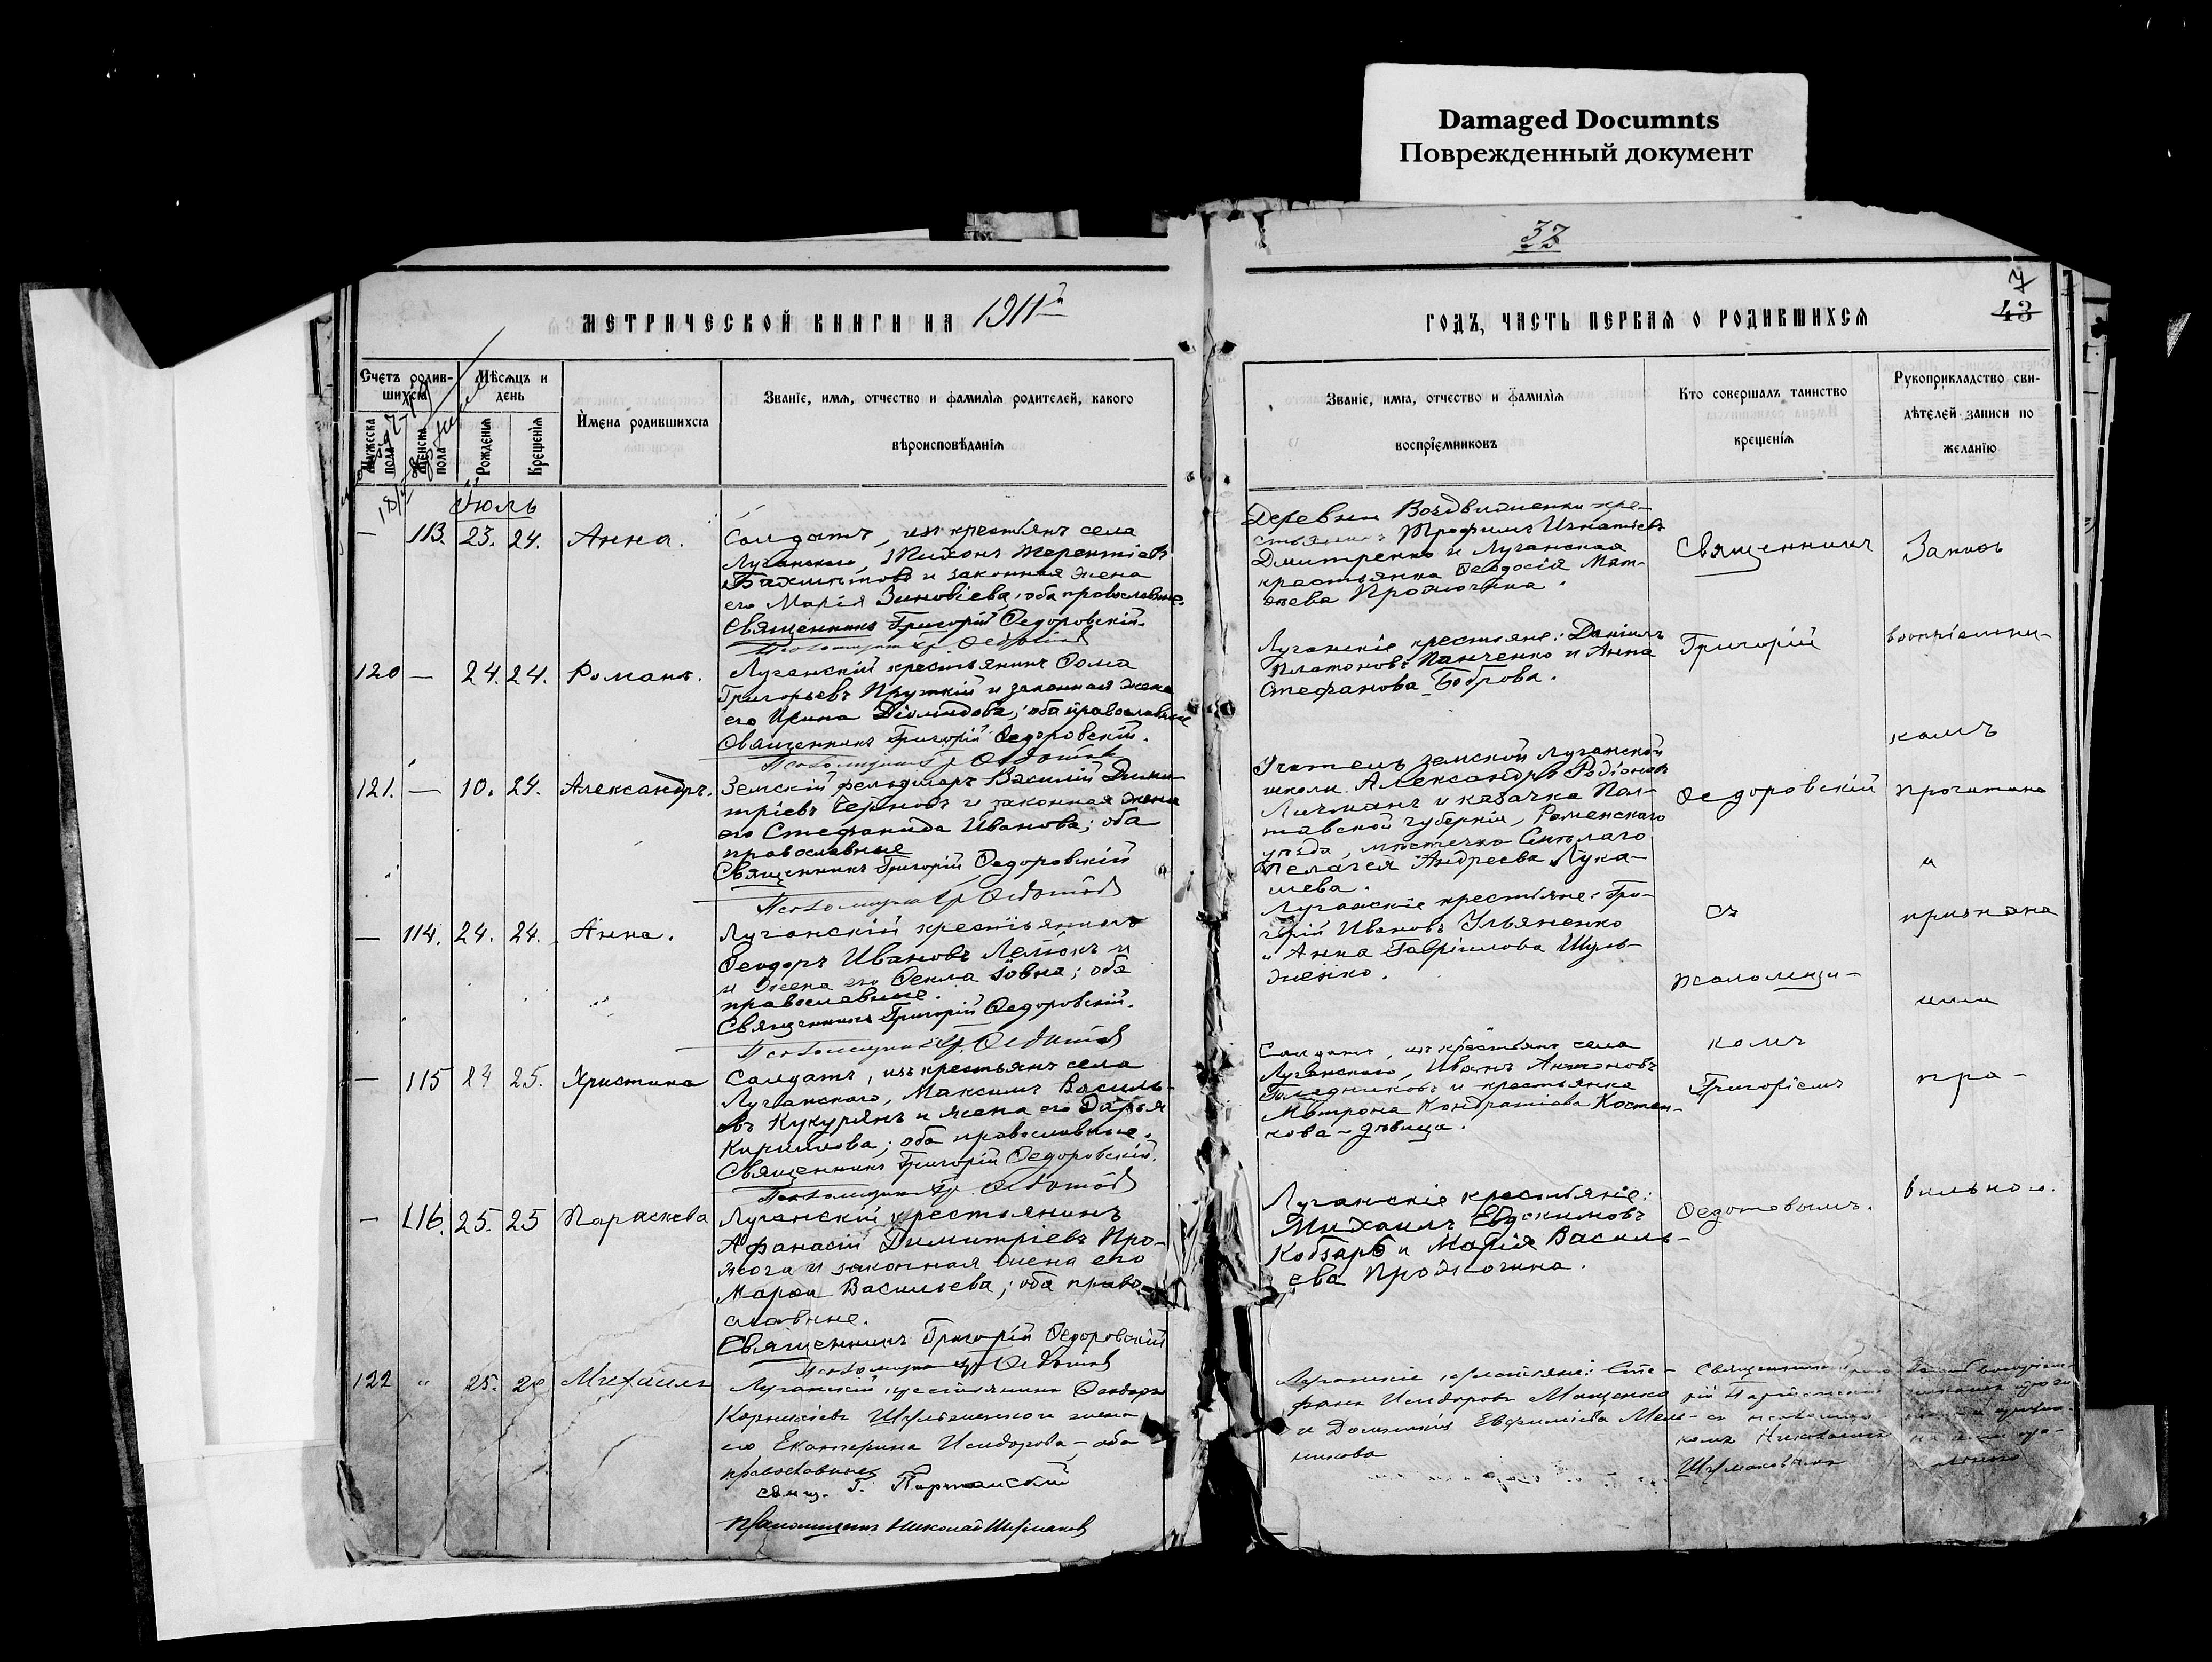 Damaged Documnts
Поврежденный документ
37
7
43
МЕТРИЧЕСКОЙ КНИГИ НА 1911й
ГОДЪ, ЧАСТЬ ПЕРВАЯ О РОДИВШИХСЯ
Счетъ родив-
шихся
Мужеска пола
Женска пола
Мѣсяцъ и
день
Рожденія
Крещенія
Имена родившихся
Званіе, имя, отчество и фамилія родителей, какого
вѣроисповѣданія
Званіе, имя, отчество и фамилія
воспріемниковъ
Кто совершалъ таинство
крещенія
Рукоприкладство сви-
дѣтелей записи по
желанію
Іюль
— 113. 23. 24. Анна.
Солдатъ, изъ крестьянъ села
Луганскаго, Тихонъ Терентіевъ
Бахмутовъ и законная жена
его Марія Зиновіева; оба православные.
Священникъ Григорій Ѳедоровскій.
Псаломщикъ Гр. Ѳедотов
Деревни Воздвиженки кре-
стьянинъ Трофимъ Игнатіевъ
Дмитренко и Луганская
крестьянка Ѳеодосія Мат-
ѳеева Прожогина.
120 — 24. 24. Романъ.
Луганскій крестьянинъ Ѳома
Григорьевъ Пруткій и законная жена
его Ирина Діомидова; оба православные
Священникъ Григорій Ѳедоровскій.
Псаломщикъ Гр. Ѳедотов
Луганскіе крестьяне: Даніилъ
Платоновъ Панченко и Анна
Стефанова Боброва.
121. — 10. 24. Александръ.
Земскій фельдшеръ Василій Дими-
тріевъ и законная жена
его Стефанида Иванова; оба
православные
Священникъ Григорій Ѳедоровскій
Псаломщикъ Гр. Ѳедотов
Учитель земской Луганской
школы Александръ Родіоновъ
Личманъ и казачка Пол-
тавской губерніи, Роменскаго
уѣзда, мѣстечка Смѣлаго
Пелагея Андреева Лука-
шева.
— 114. 24. 24. Анна.
Луганскій крестьянинъ
Ѳеодоръ Ивановъ
и жена его Ѳекла оба
православные.
Священникъ Григорій Ѳедоровскій.
Псаломщикъ Гр. Ѳедотов
Луганскіе крестьяне: Гри-
горій Ивановъ Ульяненко
и Анна Гавріилова Шуль-
женко.
— 115 24 25. Христина
Солдатъ, изъ крестьянъ села
Луганскаго, Максимъ Василь-
евъ Кукурянъ и жена его Дарья
Кириллова; оба православные.
Священникъ Григорій Ѳедоровскій.
Псаломщикъ Гр. Ѳедотов
Солдатъ, изъ крестьянъ села
Луганскаго, Иванъ Антоновъ
и крестьянка
Матрона Кондратіева Костен-
кова – дѣвица.
— 116. 25. 25 Параскева
Луганскій крестьянинъ
Аѳанасій Димитріевъ Про-
жога и законная жена его
Марѳа Васильева; оба право-
славные.
Священникъ Григорій Ѳедоровскій
Псаломщикъ Гр. Ѳедотов
Луганскіе крестьяне:
Михаилъ Евдокимовъ
Кобзарь и Марія Василь-
ева Прожогина.
122 " 25. Михаилъ
Луганскій крестьянинъ Ѳеодоръ
Корниліевъ и жена
его Екатерина Исидорова – оба
православные
свящ. Г.
Псаломщикъ Николай Шермаков
Луганскіе крестьяне: Сте-
фанъ Исидоровъ Мощенко
и Домникія Евфиміева Мель-
никова
Священникъ
Григорій
Ѳедоровскій
съ
псаломщи-
комъ
Григоріемъ
Ѳедотовымъ.
Священникъ
съ псаломщи-
комъ Николаемъ
Запись
воспріемни-
камъ
прочитана
и
признана
ими
пра-
вильною.